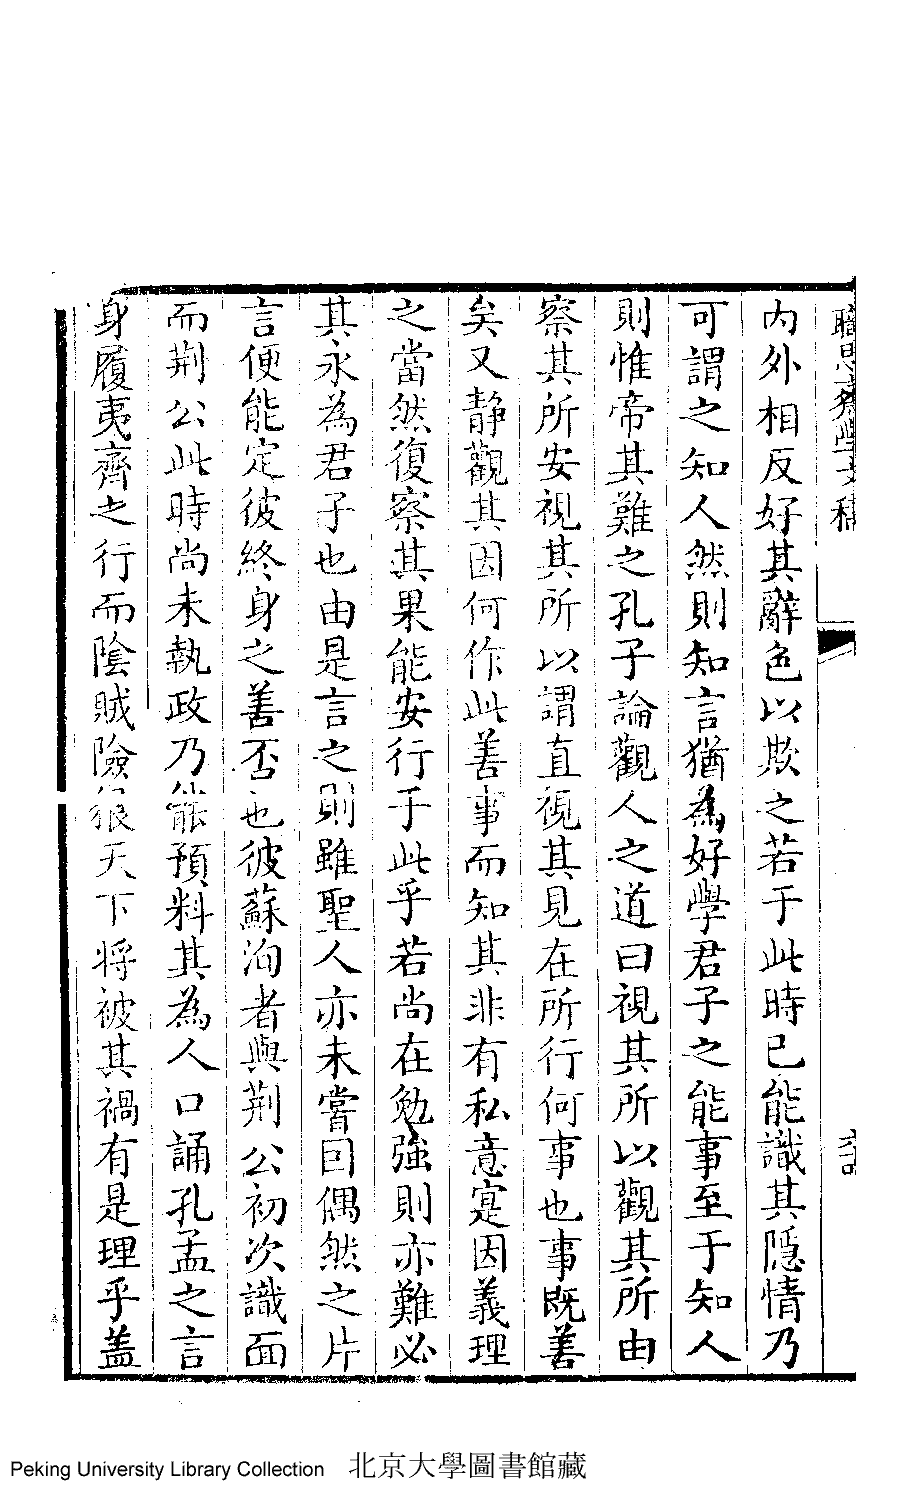 內外相反好其辭色以欺之若于此時已能識其隱情乃
可謂之知人然則知言猶為好學君子之能事至于知人
則惟帝其難之孔子論觀人之道曰視其所以觀其所由
察其所安視其所以謂直視其見在所行何事也事既善
矣又靜觀其因何作此善事而知其非有私意寔因義理
之當然復察其果能安行于此乎若尚在勉強則亦難必
其永為君子也由是言之則雖聖人亦未嘗因偶然之片
言便能定彼終身之善否也彼蘇洵者與荆公初次識面
而荆公此時尚未執政乃能預料其為人口誦孔孟之言
身履夷齊之行而陰賊險狠天下將被其禍有是理乎盖
Peking University Library Collection 北京大學圖書館藏